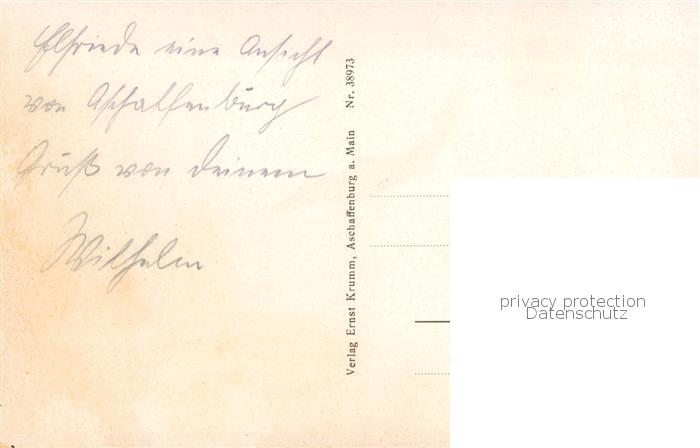 Elfriede eine Ansicht
von Aschaffenburg
Gruß von Deinem
Wilhelm
Verlag Ernst Krumm, Aschaffenburg a. Main Nr. 38973
privacy protection
Datenschutz